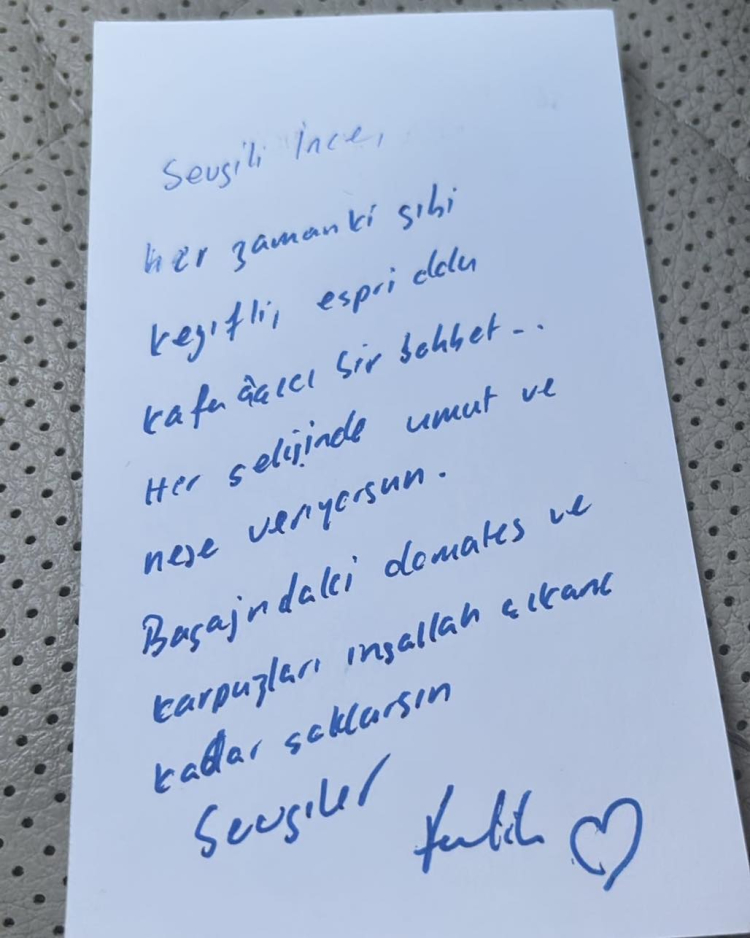 Sevgili İnce,
her zamanki gibi
keyifli, espri dolu
kafa açıcı bir sohbet...
Her gelişinde umut ve
neşe veriyorsun.
Bagajındaki domates ve
karpuzları inşallah çıkana
kadar saklarsın
Sevgiler